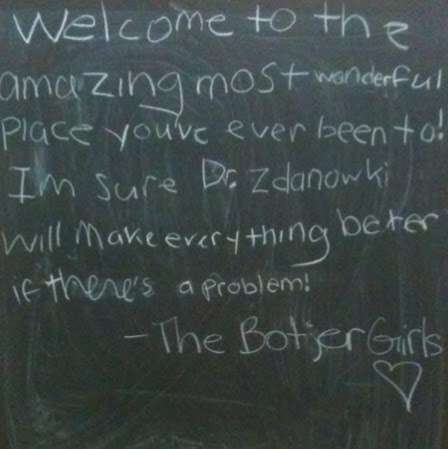 Welcome to the
amazing most wonderful
place you've ever been to!
Im sure Dr. Zdanowki
will make everything beter
if there's a problem!
- The Botjer Girls
♡